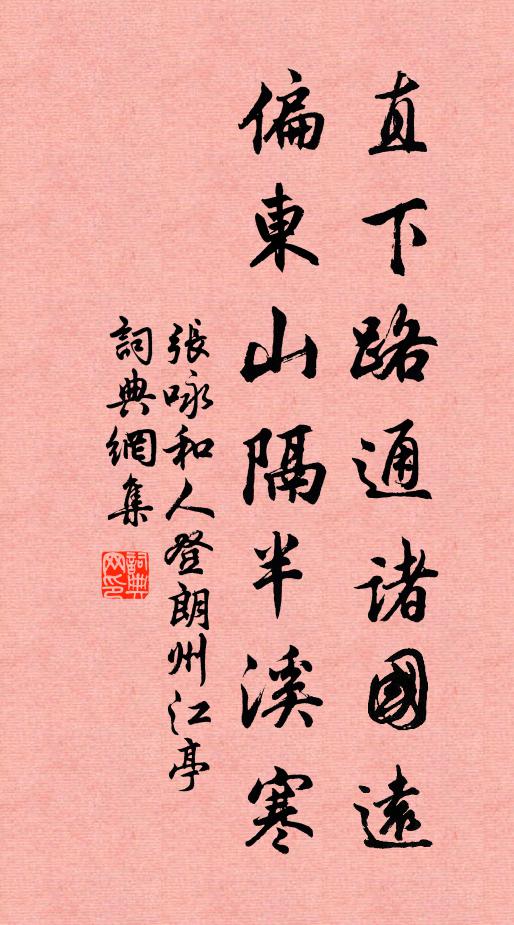 直下路通諸國遠
偏東山隔半溪寒
張咏和人登朗州江亭
詞典網集
詞典
网印